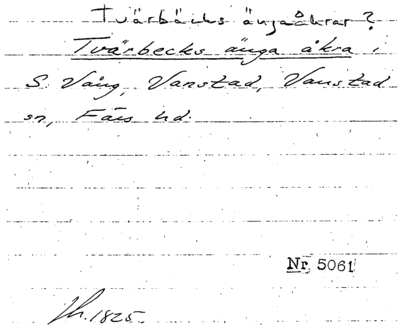 Tvärbäcks ängaåkrar?
Tvärbecks änga åkra i
S. Vång, Vanstad, Vanstad
sn, Färs hd.
Nr 5061
1825.